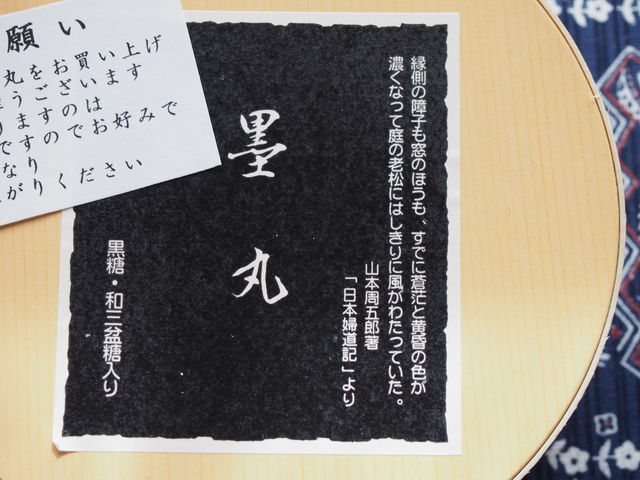 願い
丸をお買い上げ
うございます
ますのは
ですのでお好みで
なり
がりください
縁側の障子も窓のほうも、すでに蒼茫と黄昏の色が
濃くなって庭の老松にはしきりに風がわたっていた。
山本周五郎著
「日本婦道記」より
墨丸
黒糖・和三盆糖入り